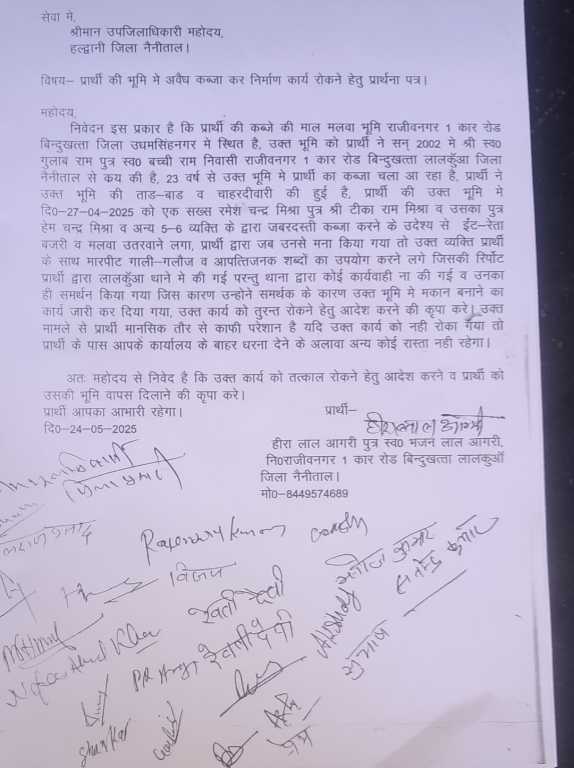 सेवा मे,
श्रीमान उपजिलाधिकारी महोदय,
हल्द्वानी जिला नैनीताल।
विषय– प्रार्थी की भूमि मे अवैध कब्जा कर निर्माण कार्य रोकने हेतु प्रार्थना पत्र।
महोदय,
निवेदन इस प्रकार है कि प्रार्थी की कब्जे की माल मलवा भूमि राजीवनगर 1 कार रोड
बिन्दुखत्ता जिला उधमसिंहनगर मे स्थित है, उक्त भूमि को प्रार्थी ने सन् 2002 मे श्री स्व0
गुलाब राम पुत्र स्व0 बच्ची राम निवासी राजीवनगर 1 कार रोड बिन्दुखत्ता लालकुँआ जिला
नैनीताल से कय की है, 23 वर्ष से उक्त भूमि मे प्रार्थी का कब्जा चला आ रहा है, प्रार्थी ने
उक्त भूमि की ताड–बाड व चाहरदीवारी की हुई है, प्रार्थी की उक्त भूमि मे
दि0–27-04-2025 को एक सख्स रमेश चन्द्र मिश्रा पुत्र श्री टीका राम मिश्रा व उसका पुत्र
हेम चन्द्र मिश्रा व अन्य 5–6 व्यक्ति के द्वारा जबरदस्ती कब्जा करने के उदेश्य से ईंट–रेता
बजरी व मलवा उतरवाने लगा, प्रार्थी द्वारा जब उनसे मना किया गया तो उक्त व्यक्ति प्रार्थी
के साथ मारपीट गाली–गलौज व आपत्तिजनक शब्दों का उपयोग करने लगे जिसकी रिर्पोट
प्रार्थी द्वारा लालकुँआ थाने मे की गई परन्तु थाना द्वारा कोई कार्यवाही ना की गई व उनका
ही समर्थन किया गया जिस कारण उन्होने समर्थक के कारण उक्त भूमि मे मकान बनाने का
कार्य जारी कर दिया गया, उक्त कार्य को तुरन्त रोकने हेतु आदेश करने की कृपा करे। उक्त
मामले से प्रार्थी मानसिक तौर से काफी परेशान है यदि उक्त कार्य को नही रोका गया तो
प्रार्थी के पास आपके कार्यालय के बाहर धरना देने के अलावा अन्य कोई रास्ता नही रहेगा।
अतः महोदय से निवेद है कि उक्त कार्य को तत्काल रोकने हेतु आदेश करने व प्रार्थी को
उसकी भूमि वापस दिलाने की कृपा करे।
प्रार्थी आपका आभारी रहेगा। प्रार्थी–
दि0–24-05-2025
हीरा लाल आगरी पुत्र स्व0 भजन लाल आगरी,
नि0राजीवनगर 1 कार रोड बिन्दुखत्ता लालकुआँ
जिला नैनीताल।
मो0–8449574689
विजय
रेवती देवी
मनोज कुमार
सुभाष
Shankar
प्रेम